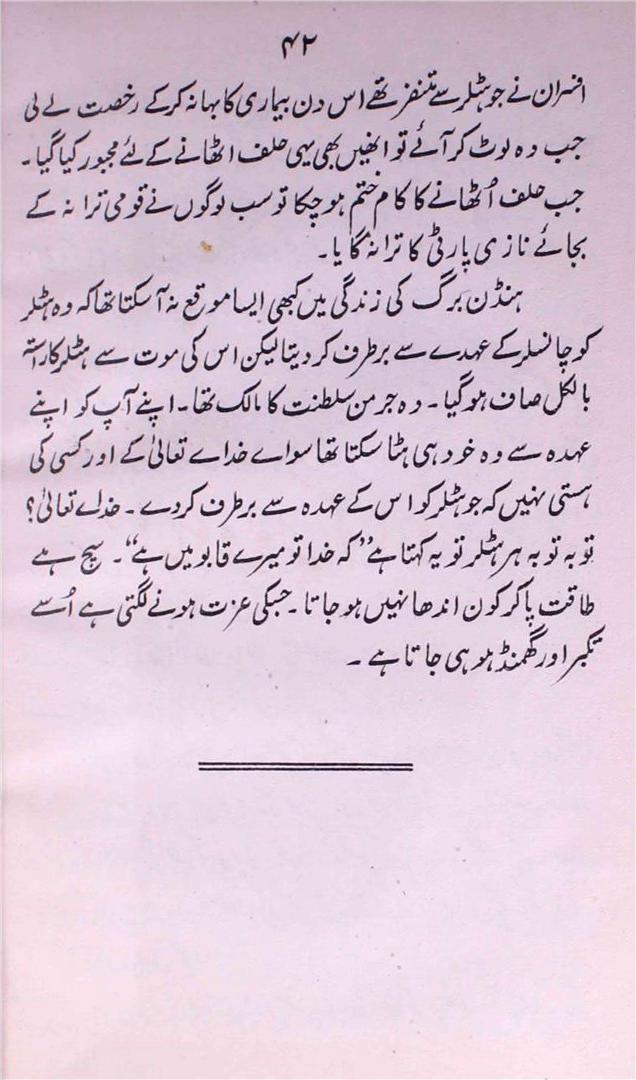 ۴۲
افسران نے جو ہٹلر سے متنفر تھے اس دن بیماری کا بہانہ کر کے رخصت لے لی
جب وہ لوٹ کر آئے تو انھیں بھی یہی حلف اٹھانے کے لئے مجبور کیا گیا۔
جب حلف اُٹھانے کا کام ختم ہو چکا تو سب لوگوں نے قومی ترانہ کے
بجائے نازی پارٹی کا ترانہ گایا۔
ہنڈن برگ کی زندگی میں کبھی ایسا موقع نہ آ سکتا تھا کہ وہ ہٹلر
کو چانسلر کے عہدے سے برطرف کر دیتا لیکن اس کی موت سے ہٹلر کا راستہ
بالکل صاف ہو گیا۔ وہ جرمن سلطنت کا مالک تھا۔ اپنے آپ کو اپنے
عہدہ سے وہ خود ہی ہٹا سکتا تھا سوائے خدائے تعالیٰ کے اور کسی کی
ہستی نہیں کہ جو ہٹلر کو اس کے عہدہ سے برطرف کر دے۔ خدائے تعالیٰ؟
توبہ توبہ ہر ہٹلر تو یہ کہتا ہے ”کہ خدا تو میرے قابو میں ہے“۔ سچ ہے
طاقت پا کر کون اندھا نہیں ہو جاتا۔ جسکی عزت ہونے لگتی ہے اُسے
تکبر اور گھمنڈ ہو ہی جاتا ہے۔